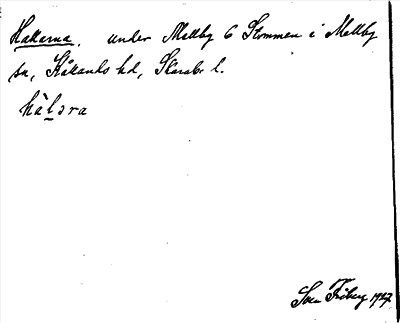 Hallarna. under Mellby 6 Stommen i Mellby
sn, Kållands hd, Skarab. l.
hàl̠ɔra
Sven Friberg 1927